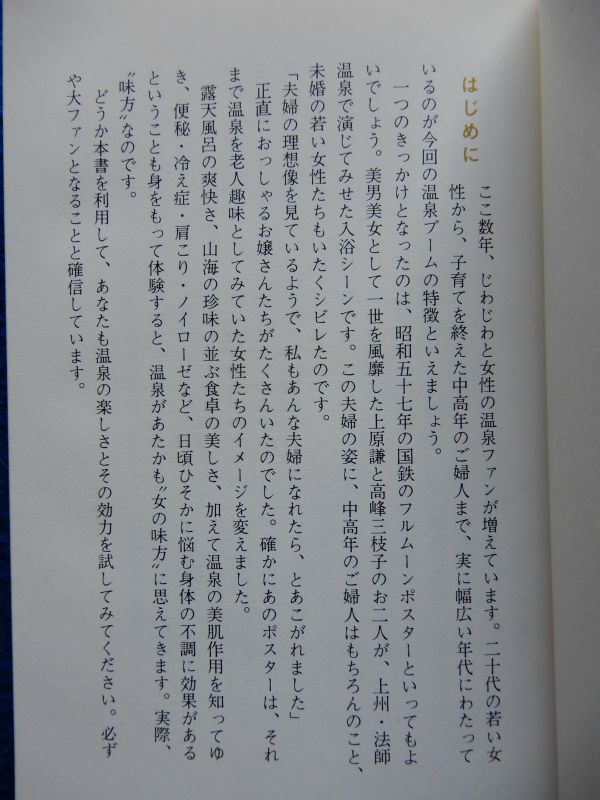 はじめに
ここ数年、じわじわと女性の温泉ファンが増えています。二十代の若い女
性から、子育てを終えた中高年のご婦人まで、実に幅広い年代にわたって
いるのが今回の温泉ブームの特徴といえましょう。
一つのきっかけとなったのは、昭和五十七年の国鉄のフルムーンポスターといってもよ
いでしょう。美男美女として一世を風靡した上原謙と高峰三枝子のお二人が、上州・法師
温泉で演じてみせた入浴シーンです。この夫婦の姿に、中高年のご婦人はもちろんのこと、
未婚の若い女性たちもいたくシビレたのです。
「夫婦の理想像を見ているようで、私もあんな夫婦になれたら、とあこがれました」
正直におっしゃるお嬢さんたちがたくさんいたのでした。確かにあのポスターは、それ
まで温泉を老人趣味としてみていた女性たちのイメージを変えました。
露天風呂の爽快さ、山海の珍味の並ぶ食卓の美しさ、加えて温泉の美肌作用を知ってゆ
き、便秘・冷え症・肩こり・ノイローゼなど、日頃ひそかに悩む身体の不調に効果がある
ということも身をもって体験すると、温泉があたかも〝女の味方〟に思えてきます。実際、
〝味方〟なのです。
どうか本書を利用して、あなたも温泉の楽しさとその効力を試してみてください。必ず
や大ファンとなることと確信しています。